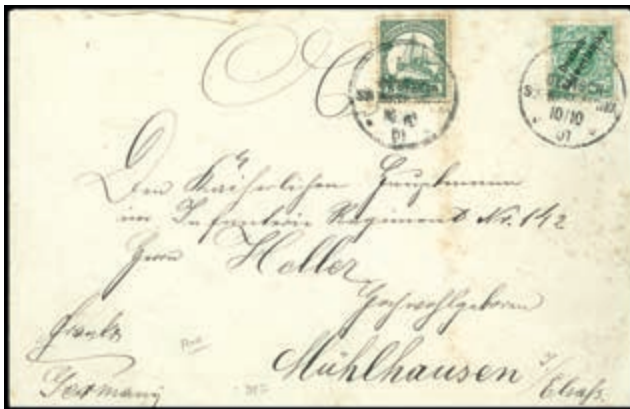 DEUTSCH-
10/10
01
10/10
01
Den Kaiserlichen Hauptmann
im Infanterie Regiment Nr. 142
Herrn Heller
Hochwohlgeboren
Mühlhausen i/
Elsass.
Franko
Germany